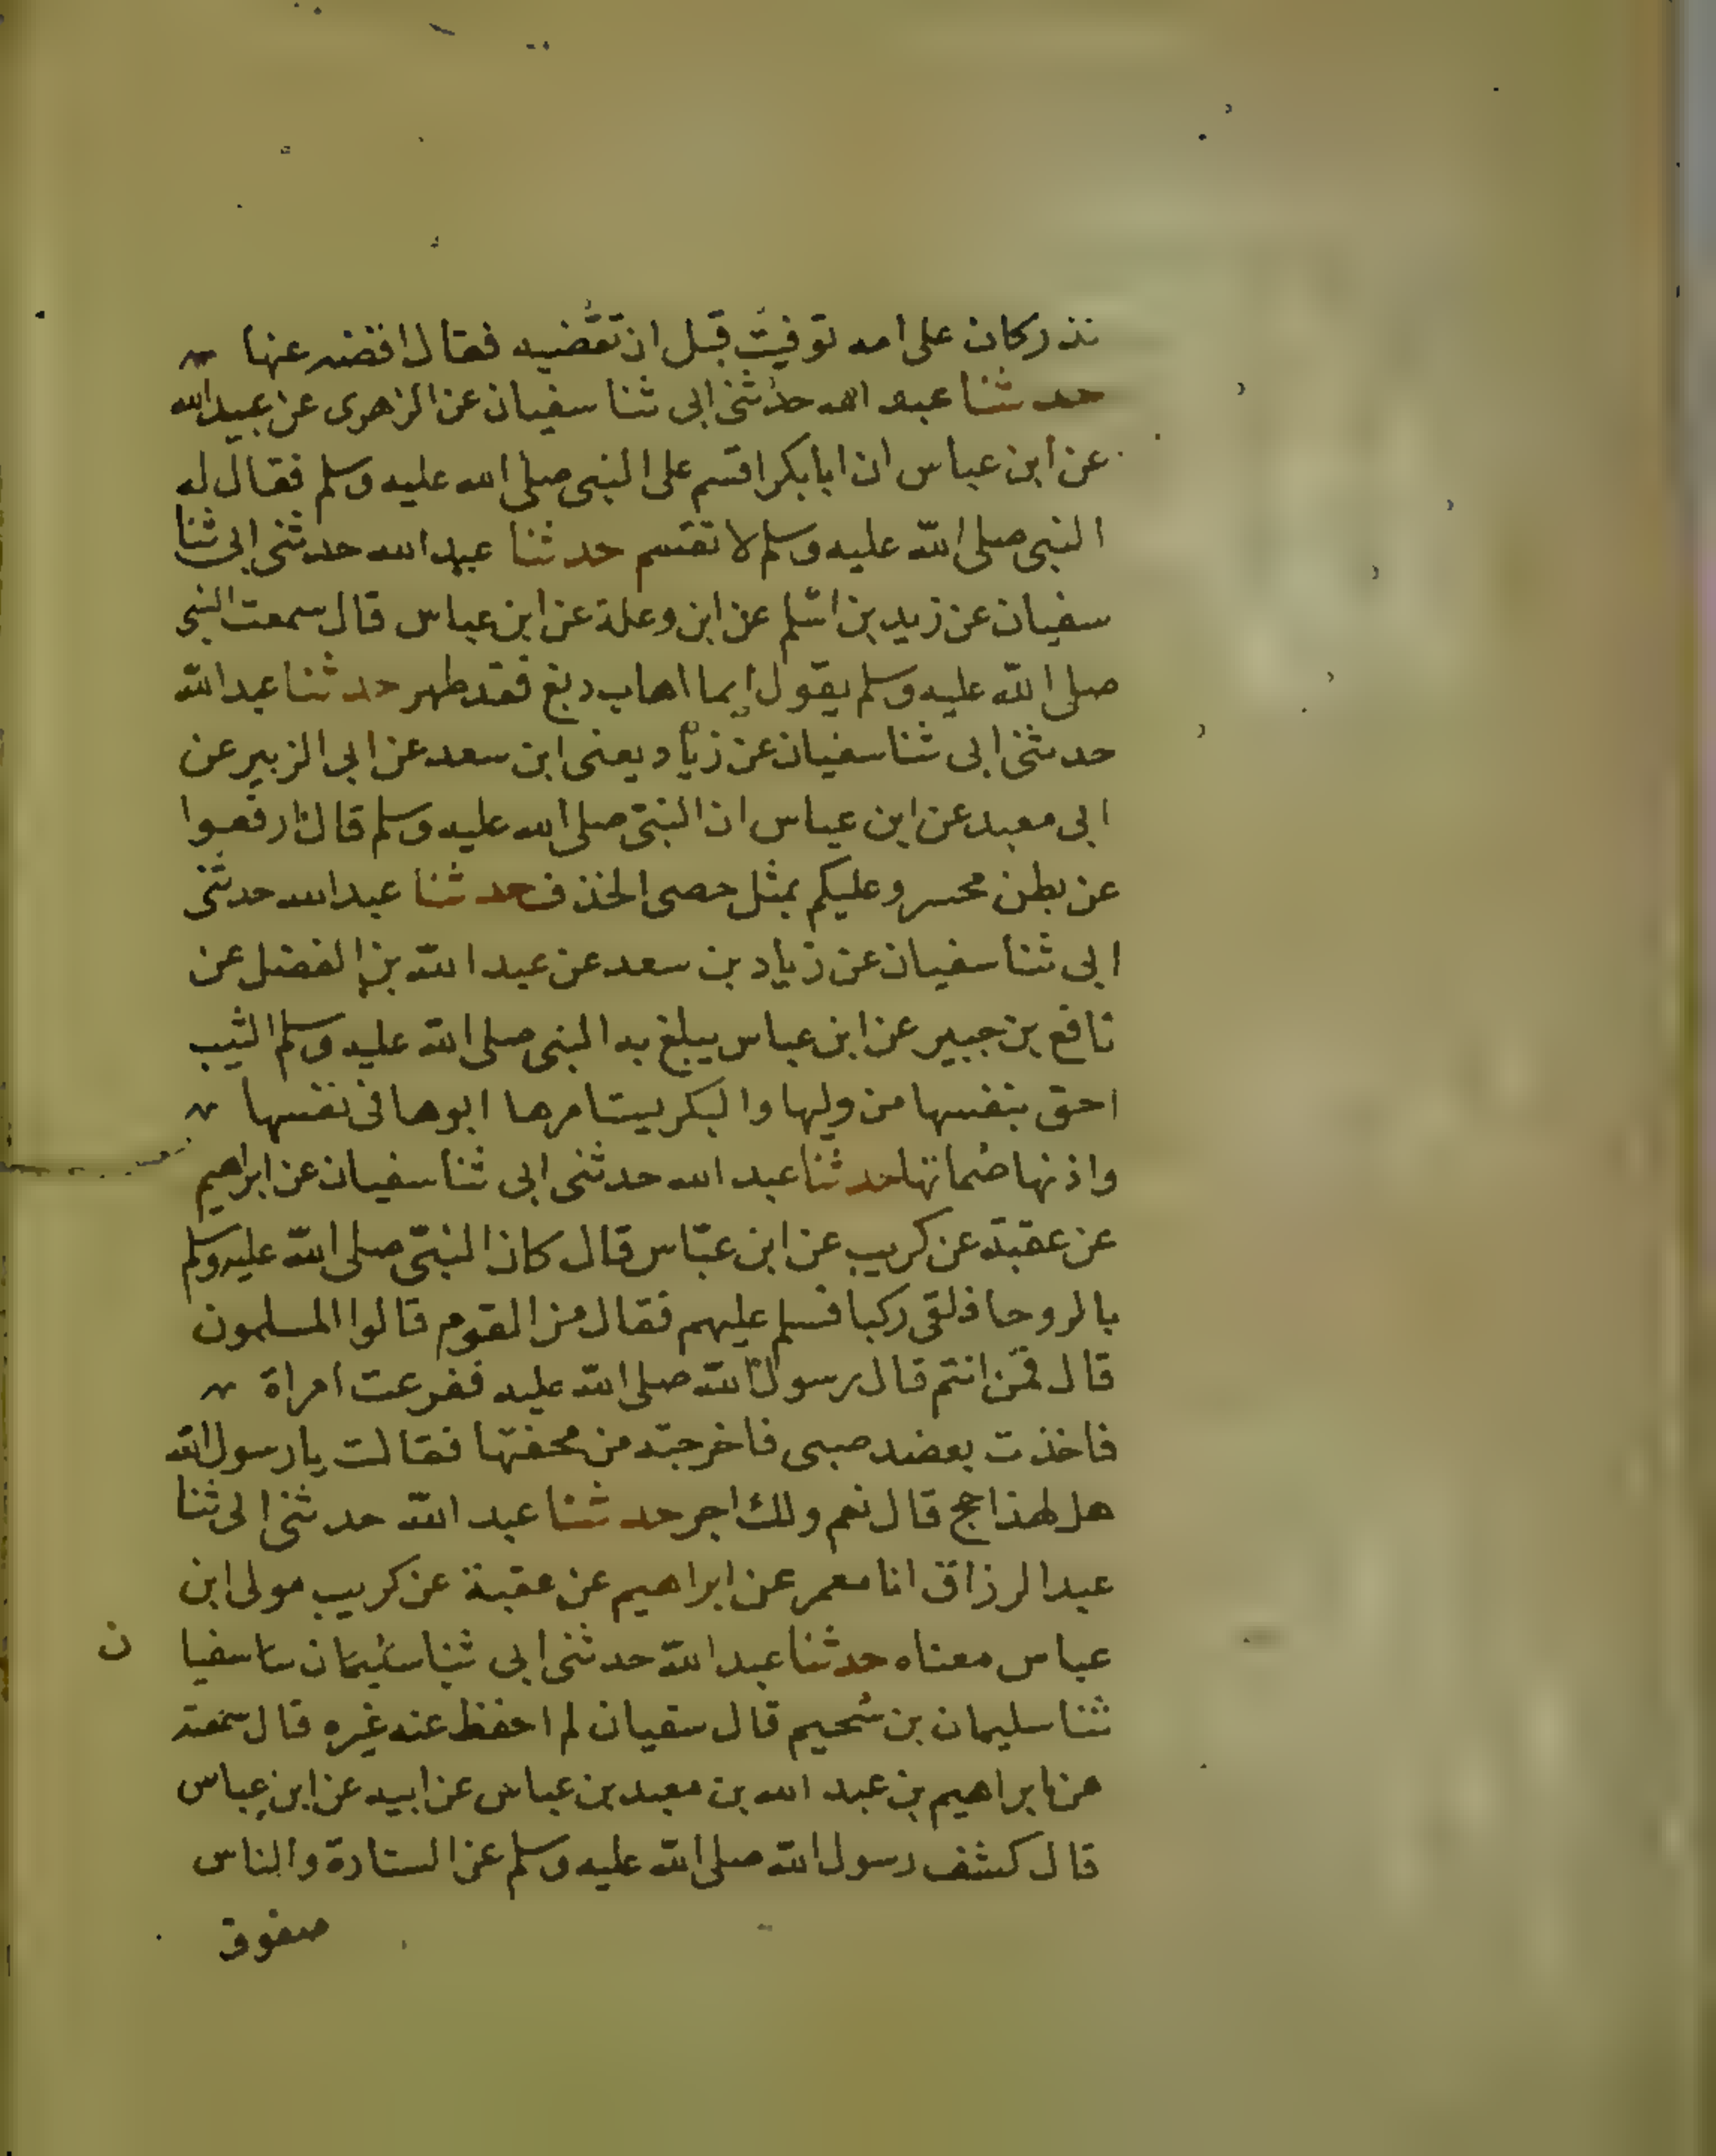 نذر كان على امه توفيت قبل ان تقضيه فقال اقضه عنها
حدثنا عبد الله حدثنى ابى ثنا سفيان عن الزهرى عن عبيد الله
عن ابن عباس ان ابا بكر اقسم على النبى صلى الله عليه وسلم فقال له
النبى صلى الله عليه وسلم لا تقسم حدثنا عبد الله حدثنى ابى ثنا
سفيان عن زيد بن اسلم عن ابن وعلة عن ابن عباس قال سمعت النبى
صلى الله عليه وسلم يقول ايما اهاب دبغ فقد طهر حدثنا عبد الله
حدثنى ابى ثنا سفيان عن زياد يعنى ابن سعد عن ابى الزبير عن
ابى معبد عن ابن عباس ان النبى صلى الله عليه وسلم قال ارفعوا
عن بطن محسر وعليكم بمثل حصى الخذف حدثنا عبد الله حدثنى
ابى ثنا سفيان عن زياد بن سعد عن عبد الله بن الفضل عن
نافع بن جبير عن ابن عباس يبلغ به النبى صلى الله عليه وسلم الثيب
احق بنفسها من وليها والبكر يستامرها ابوها فى نفسها
واذنها صماتها حدثنا عبد الله حدثنى ابى ثنا سفيان عن ابراهيم
عن عقبة عن كريب عن ابن عبّاس قال كان النبىّ صلى الله عليه وسلم
بالروحا فلقى ركبا فسلم عليهم فقال من القوم قالوا المسلمون
قال فمن انتم قال رسول الله صلى الله عليه ففزعت امراة
فاخذت بعضد صبى فاخرجته من محفتها فقالت يا رسول الله
هل لهذا حج قال نعم ولك اجر حدثنا عبد الله حدثنى ابى ثنا
عبد الرزاق انا معمر عن ابراهيم عن عقبة عن كريب مولى ابن
عباس معناه حدثنا عبد الله حدثنى ابى ثنا سليمان سا سفيا ن
ثنا سليمان بن سُحيم قال سفيان لم احفظ عنه غيره قال سمعته
عن ابراهيم بن عبد الله بن معبد بن عباس عن ابيه عن ابن عباس
قال كشف رسول الله صلى الله عليه وسلم عن الستارة والناس
صفوف